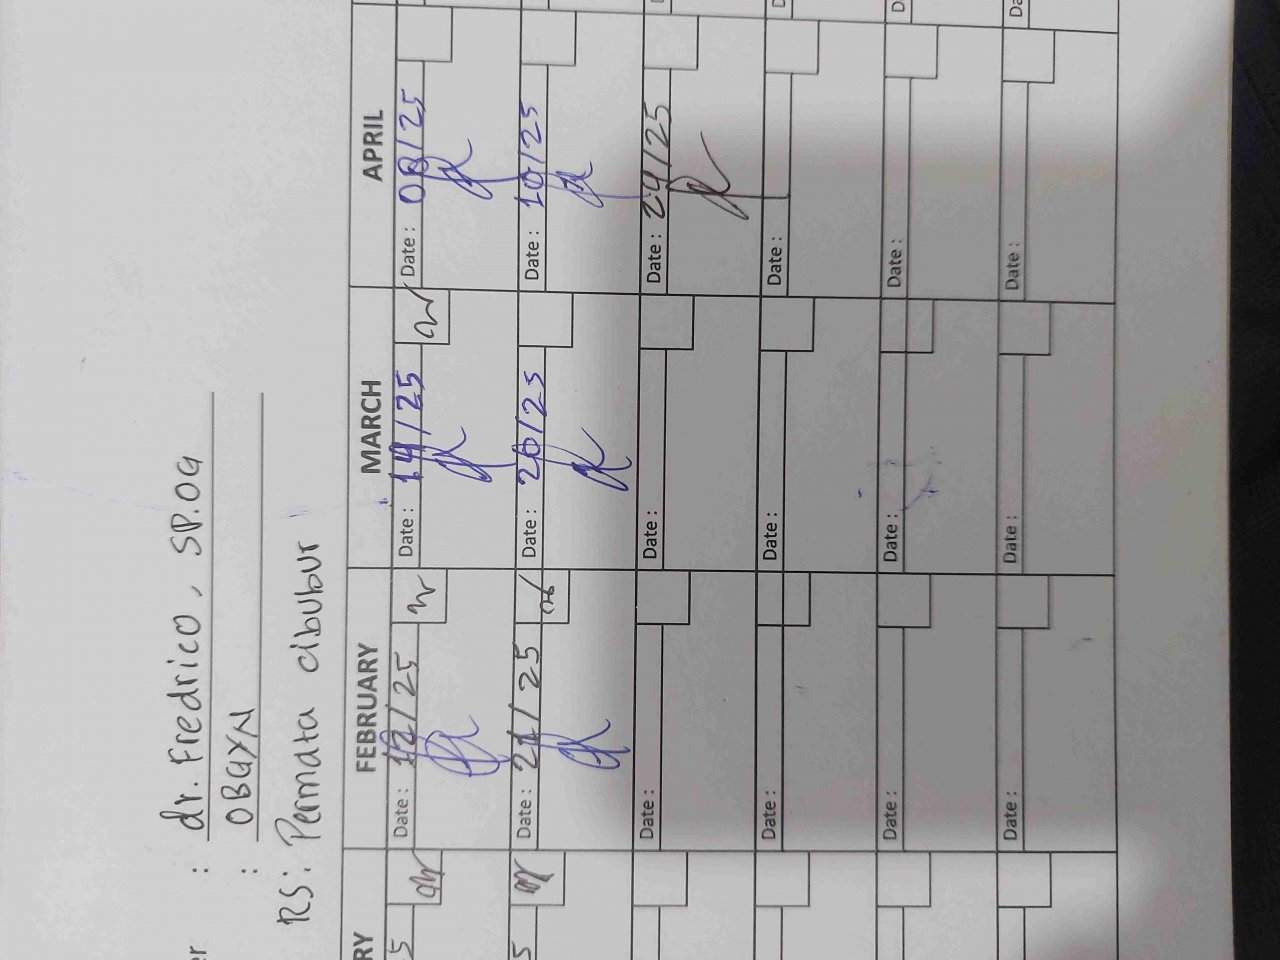 : dr. Fredrico, SP.OG
: OBGYN
RS: Permata cibubur
RY FEBRUARY MARCH APRIL
5 Date: 12/25 Date: 14/25 Date: 08/25
5 Date: 21/25 Date: 20/25 Date: 10/25
Date: Date: Date: 24/25
Date: Date: Date:
Date: Date: Date:
Date: Date: Date: